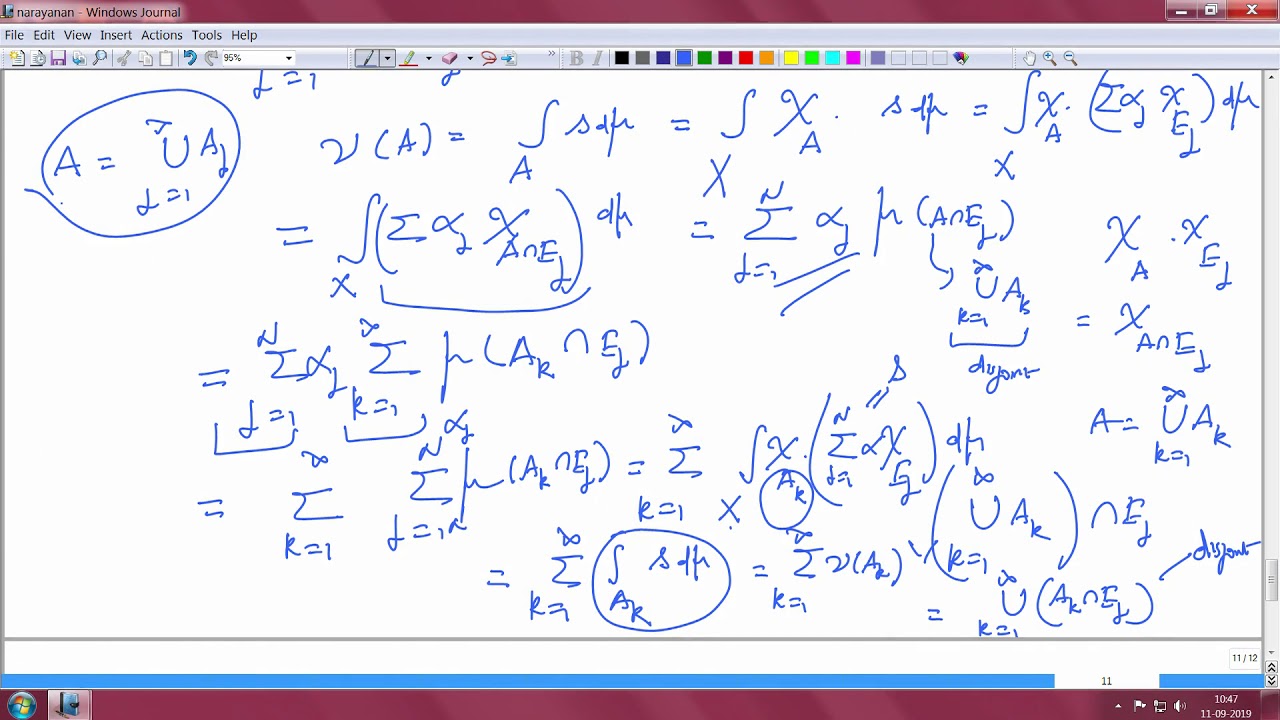 narayanan - Windows Journal
File Edit View Insert Actions Tools Help
95%
j=1
A = ∞ ∪ j=1 A_j
ν(A) = ∫_A s dμ = ∫_X χ_A · s dμ = ∫_X χ_A · (Σ α_j χ_{E_j}) dμ
= ∫_X (Σ α_j χ_{A∩E_j}) dμ = Σ_{j=1}^N α_j μ(A∩E_j)
∪_{k=1}^∞ A_k
disjoint
χ_A · χ_{E_j}
= χ_{A∩E_j}
= Σ_{j=1}^N α_j Σ_{k=1}^∞ μ(A_k ∩ E_j)
A = ∪_{k=1}^∞ A_k
= Σ_{k=1}^∞ Σ_{j=1}^N α_j μ(A_k ∩ E_j) = Σ_{k=1}^∞ ∫_X χ_{A_k} · (Σ_{j=1}^N α χ_{E_j}) dμ
s
(∪_{k=1}^∞ A_k) ∩ E_j
= Σ_{k=1}^∞ ∫_{A_k} s dμ = Σ_{k=1}^∞ ν(A_k)
= ∪_{k=1}^∞ (A_k ∩ E_j)
disjoint
11 / 12
11
10:47
11-09-2019